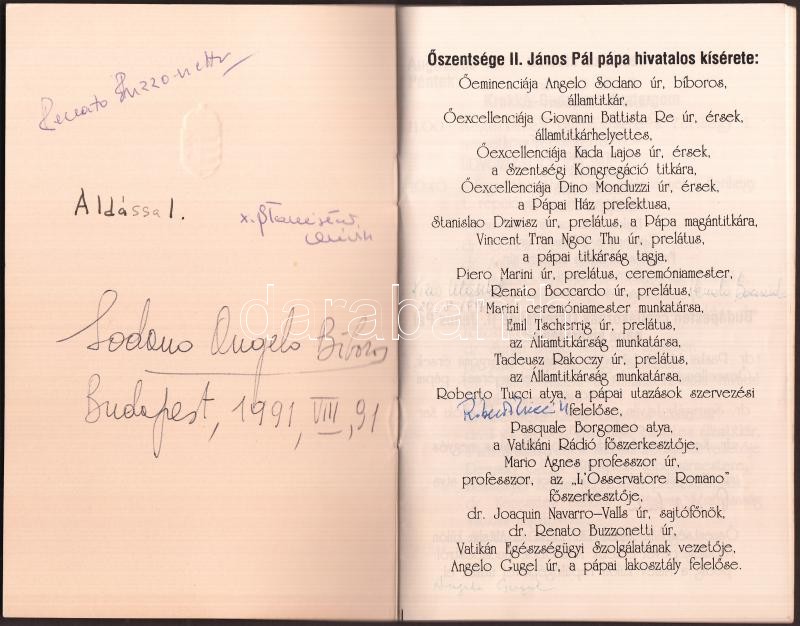 Renato Buzzonetti
Aldással.
Sodano Angelo Bíboros
Budapest, 1991, VIII, 91
darabanth
Őszentsége II. János Pál pápa hivatalos kísérete:
Őeminenciája Angelo Sodano úr, bíboros,
államtitkár,
Őexcellenciája Giovanni Battista Re úr, érsek,
államtitkárhelyettes,
Őexcellenciája Kada Lajos úr, érsek,
a Szentségi Kongregáció titkára,
Őexcellenciája Dino Monduzzi úr, érsek,
a Pápai Ház prefektusa,
Stanislao Dziwisz úr, prelátus, a Pápa magántitkára,
Vincent Tran Ngoc Thu úr, prelátus,
a pápai titkárság tagja,
Piero Marini úr, prelátus, ceremóniamester,
Renato Boccardo úr, prelátus,
Marini ceremóniamester munkatársa,
Emil Tscherrig úr, prelátus,
az Államtitkárság munkatársa,
Tadeusz Rakoczy úr, prelátus,
az Államtitkárság munkatársa,
Roberto Tucci atya, a pápai utazások szervezési
Roberto Tucci felelőse,
Pasquale Borgomeo atya,
a Vatikáni Rádió főszerkesztője,
Mario Agnes professzor úr,
professzor, az „L'Osservatore Romano"
főszerkesztője,
dr. Joaquin Navarro-Valls úr, sajtófőnök,
dr. Renato Buzzonetti úr,
Vatikán Egészségügyi Szolgálatának vezetője,
Angelo Gugel úr, a pápai lakosztály felelőse.
Angelo Gugel